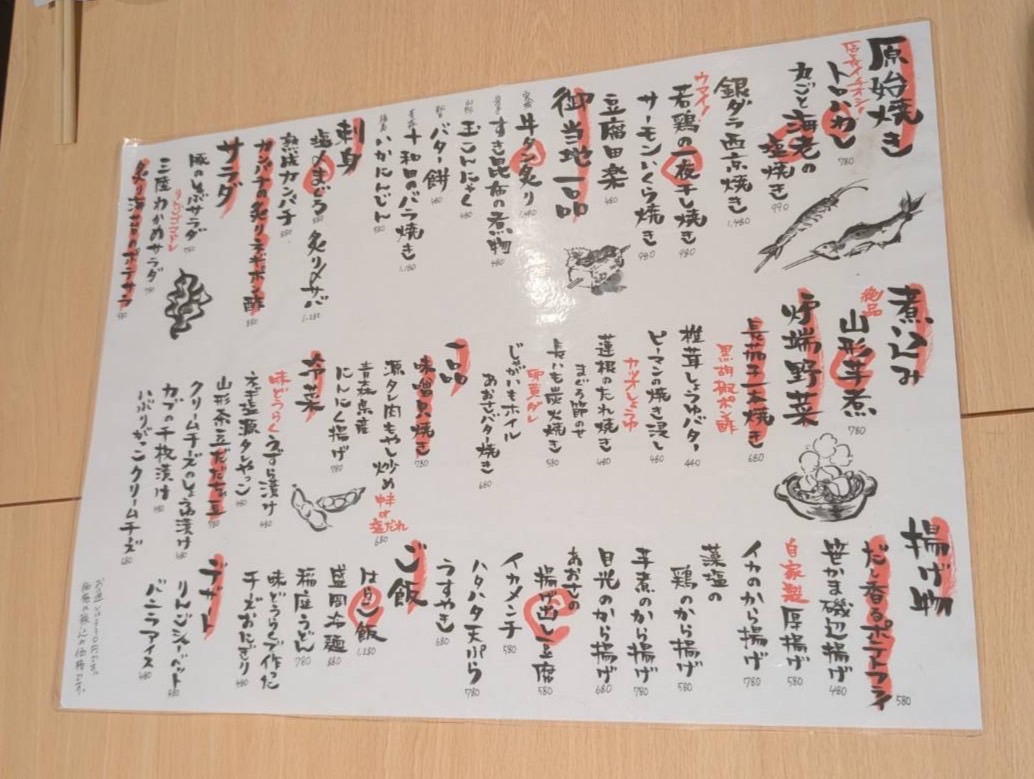 原始焼き
店長イチオシ!
トロいわし
780
丸ごと海老の
塩焼き
990
銀ダラ西京焼き
1,480
ウマイ!
若鶏の一夜干し焼き
980
サーモンいくら焼き
980
豆腐田楽
御当地一品
牛タン炙り
すき昆布の煮物
480
玉こんにゃく
480
バター餅
480
十和田のバラ焼き
1,180
いかにんじん
580
刺身
塩〆まぐろ
炙り〆サバ
1,280
熟成カンパチ
カンパチの炙りネギポン酢
サラダ
豚しゃぶサラダ
三陸わかめサラダ
炙り海苔のポテサラ
煮込み
絶品
山形芋煮
780
炉端野菜
長茄子一本焼き
黒胡椒ポン酢
680
椎茸しょうゆバター
440
ピーマンの焼き浸し
カツオしょうゆ
480
蓮根のたれ焼き
まぐろ節のせ
480
長いも炭火焼き
卵黄ダレ
580
じゃがいもホイル
あおさバター焼き
680
一品
味噌貝焼き
780
源タレ肉もやし炒め
680
青森県産
にんにく揚げ
780
冷菜
味どうらく
うずら漬け
480
ネギ塩源タレやっこ
山形茶豆だだちゃ豆
クリームチーズのしょうゆ漬け
カブの千枚漬け
いぶりがっこクリームチーズ
揚げ物
だし香るポテトフライ
580
笹かま磯辺揚げ
480
自家製
厚揚げ
580
イカのから揚げ
780
藻塩の
鶏のから揚げ
580
芋煮のから揚げ
780
目光のから揚げ
680
あおさの
揚げ出し豆腐
580
イカメンチ
580
ハタハタ天ぷら
780
うすやき
680
ご飯
はらこ飯
1,280
盛岡冷麺
880
稲庭うどん
780
味どうらくで作った
チーズおにぎり
480
デザート
りんごシャーベット
バニラアイス
480